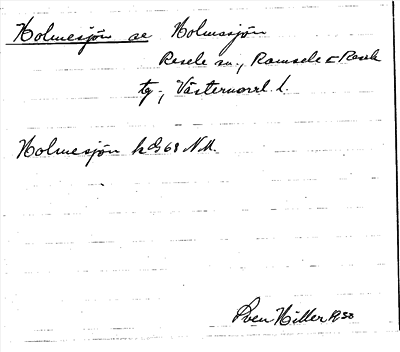 Holmesjön se Holmssjön
Resele sn., Ramsele o Resele
tg., Västernorrl. l.
Holmesjön hG68 NM.
Sven Hiller 1950